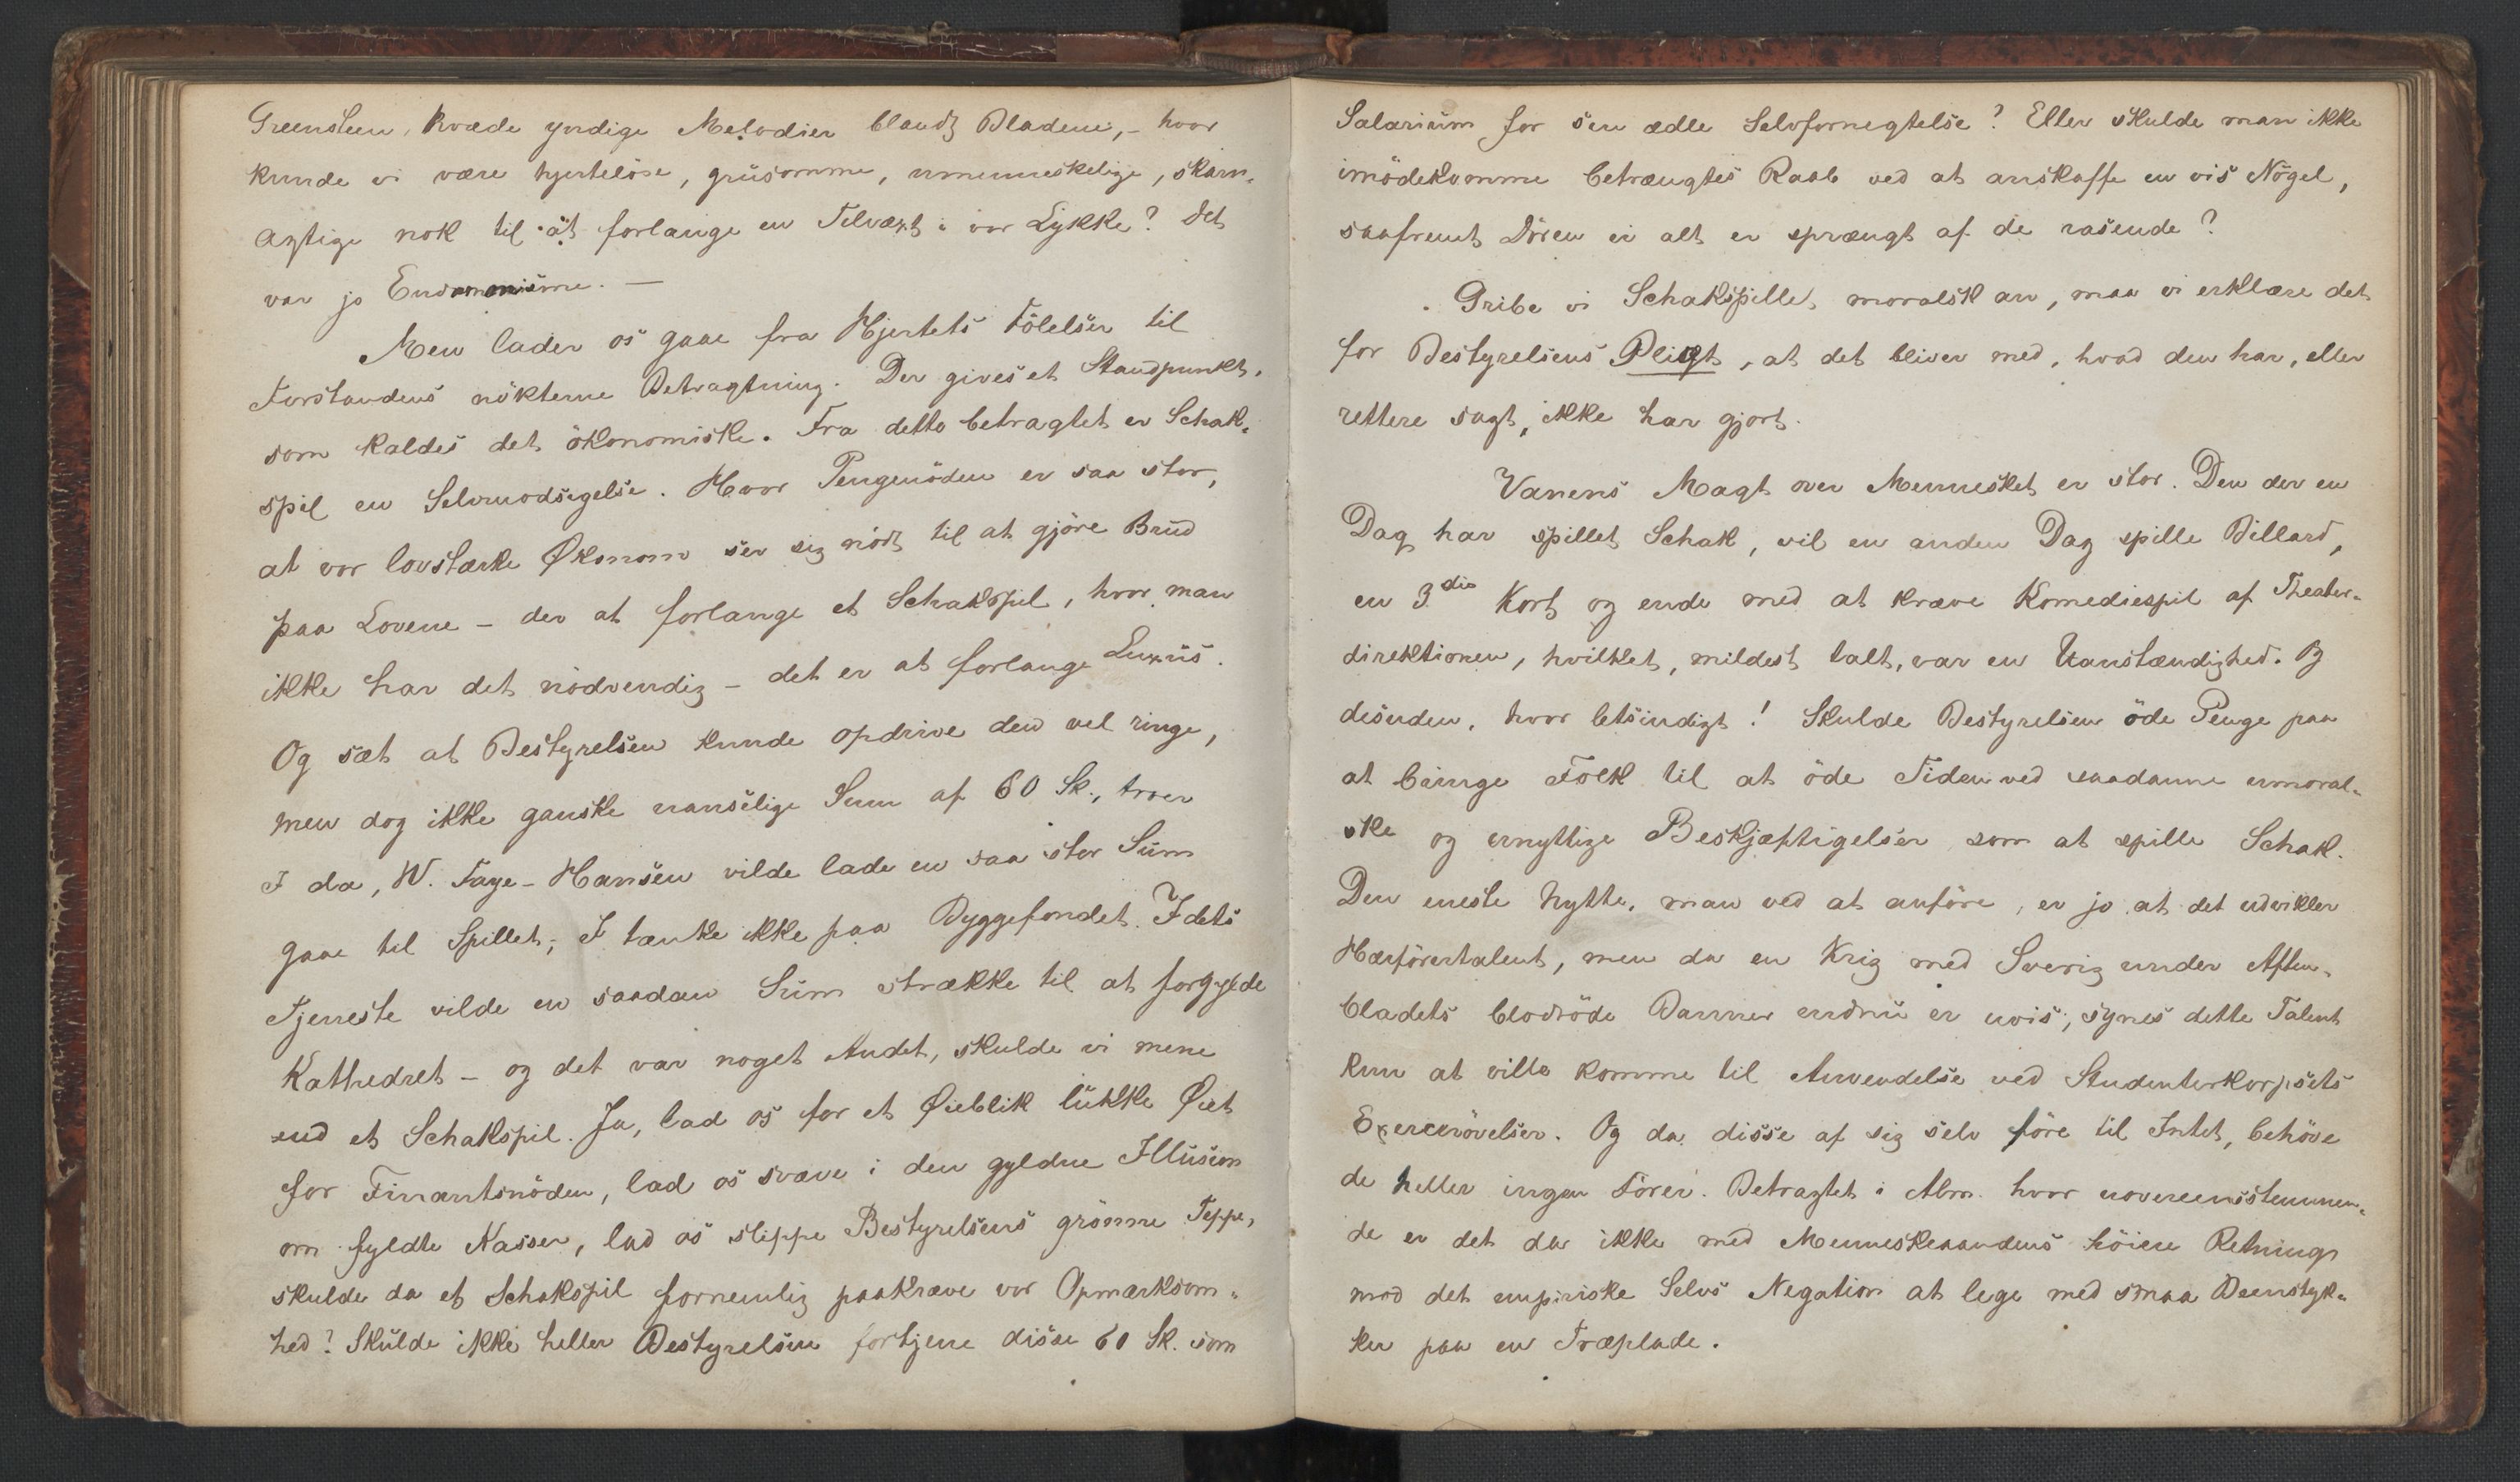 Greensleen, kvæde yndige Melodier blandt Bladene, – hvor
kunde vi være hjerteløse, grusomme, umenneskelige, skarn-
agtige nok til at forlange en Tilvæxt i vor Lykke? Det
var jo Eudæmonisme. —
Men lader os gaae fra Hjertets Følelser til
Forstandens nökterne Betragtning. Der gives et Standpunkt,
som kaldes det ökonomiske. Fra dette betragtet er Schak-
spil en Selvmodsigelse. Hvor Pengenöden er saa stor,
at vor lovstærke Økonom ser sig nödt til at gjöre Brud
paa Lovene – der at forlange et Schakspil, hvor man
ikke har det nödvendig – det er at forlange Luxus.
Og sæt at Bestyrelsen kunde opdrive den vel ringe,
men dog ikke ganske uanselige Sum af 60 Sk., troer
I da, W. Faye-Hansen vilde lade en saa stor Sum
gaae til Spillet; I tænke ikke paa Byggefondet. I dets
Tjeneste vilde en saadan Sum strække til at forgylde
Kathedret – og det var noget Andet, skulde vi mene
end et Schakspil. Ja, lad os for et Øieblik lukke Øiet
for Finantsnöden, lad os svæve i den gyldne Illusion
om fyldte Kasser, lad os slippe Bestyrelsens grönne Teppe,
skulde da et Schakspil fornemlig paakræve vor Opmærksom-
hed? Skulde ikke heller Bestyrelsen fortjene disse 60 Sk. som
Salarium for sin ædle Selvfornegtelse? Eller skulde man ikke
imödekomme betrængtes Raab ved at anskaffe en vis Nögel,
saafremt Dören ei alt er sprængt af de rasende?
Gribe vi Schakspillet moralsk an, maa vi erklære det
for Bestyrelsens Pligt, at det bliver med, hvad den har, eller
rettere sagt, ikke har gjort.
Vanens Magt over Mennesket er stor. Den der en
Dag har spillet Schak, vil en anden Dag spille Billard,
en 3die Kort og ende med at kræve Komediespil af Theater-
direktionen, hvilket, mildest talt, var en Uanstændighed. Og
desuden, hvor letsindigt! Skulde Bestyrelsen öde Penge paa
at bringe Folk til at öde Tiden ved saadanne umoral-
ske og unyttige Beskjæftigelser som at spille Schak.
Den eneste Nytte, man ved at anföre, er jo at det udvikler
Hærförertalent, men da en Krig med Sverig under Aften-
bladets blodröde Banner endnu er uvis, synes dette Talent
kun at ville komme til Anvendelse ved Studenterkorpsets
Exercerövelser. Og da disse af sig selv före til Intet, behöve
de heller ingen Förer. Betragtet i Alm. hvor uovereensstemmen-
de er det da ikke med Menneskeaandens höiere Retning
mod det empiriske Selvs Negation at lege med smaa Beenstyk-
ker paa en Træplade.